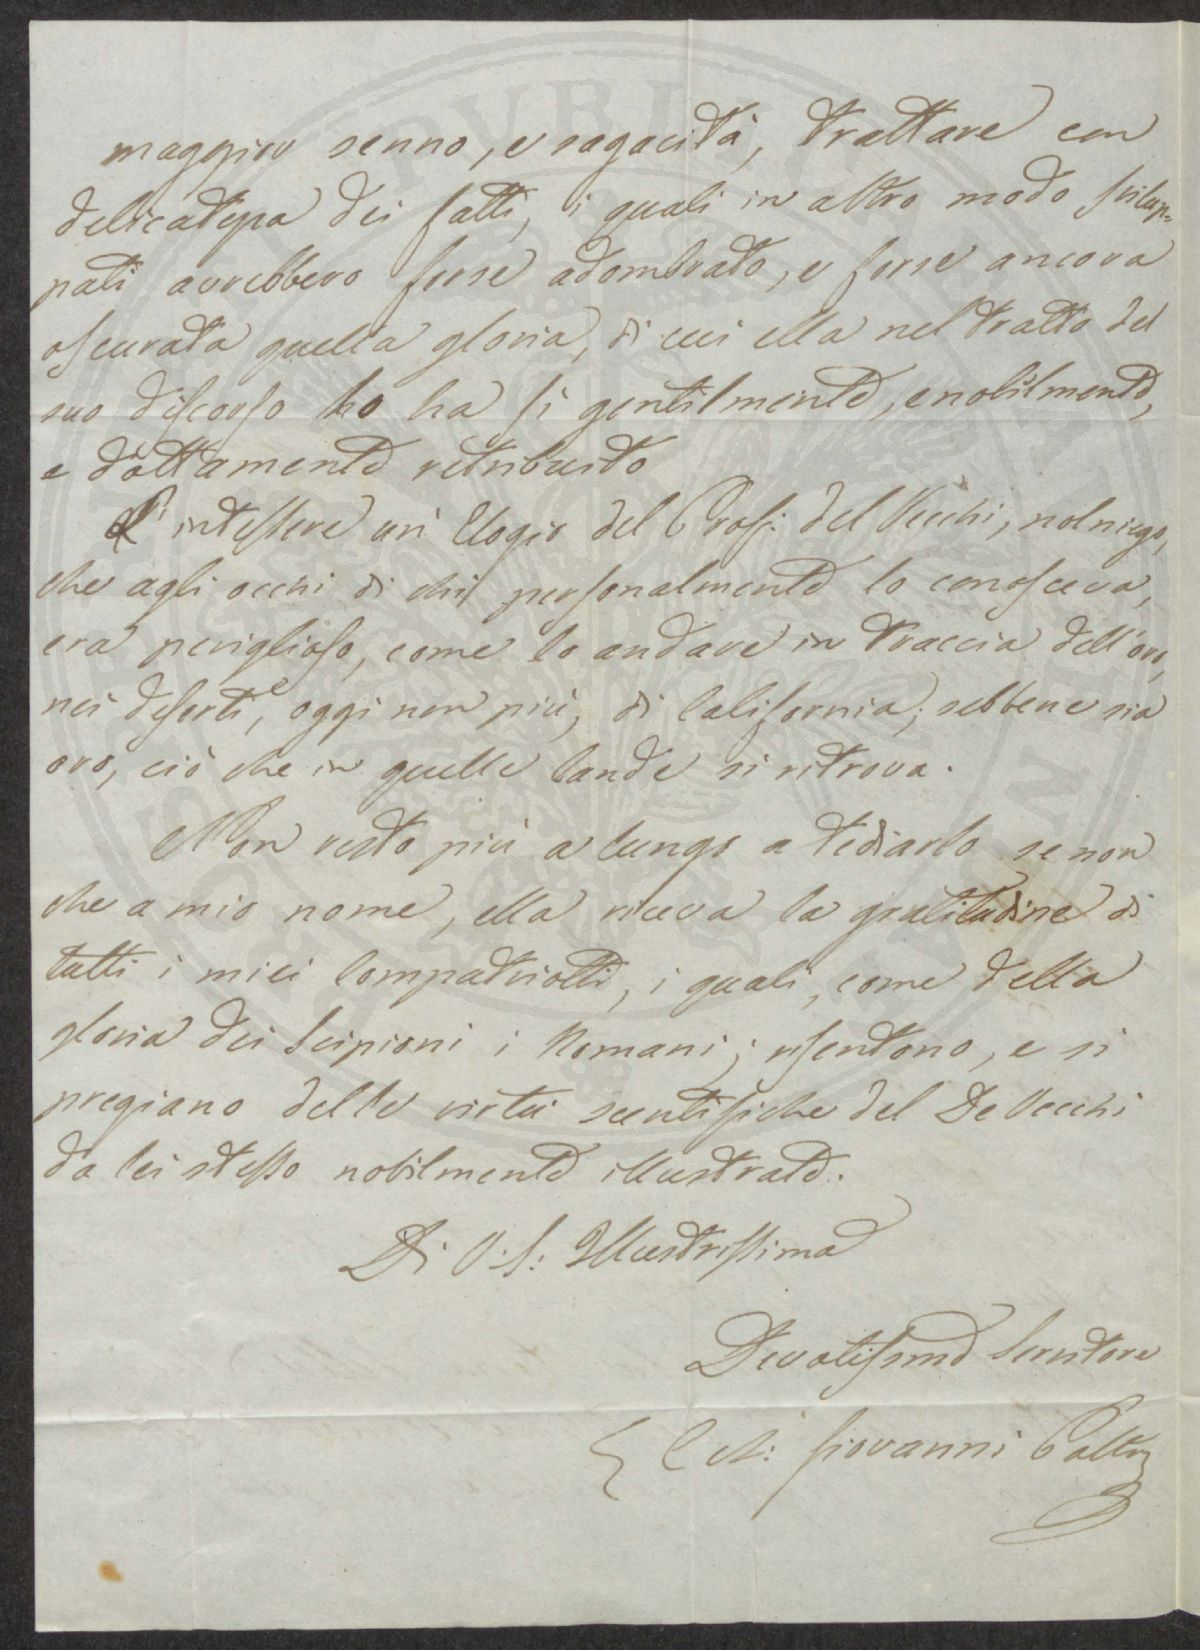 maggior senno, e sagacità, trattare con
delicatezza dei fatti, i quali in altro modo svilup=
pati avrebbero forse adombrato, e forse ancora
oscurata quella gloria, di cui ella nel tratto del
suo discorso ho ha sì gentilmente, e nobilmente,
e dottamente retribuito
L'intessere un Elogio del Prof: Del Vecchi, nol niego,
che agli occhi di chi personalmente lo conosceva,
era periglioso, come lo andare in traccia dell'oro,
nei deserti, oggi non più, di California; sebbene sia
oro, ciò che in quelle lande si ritrova.
Non resto più a lungo a tediarlo se non
che a mio nome, ella riceva la gratitudine di
tutti i miei Compatriotti, i quali, come della
gloria dei Scipioni i Romani; risentono, e si
pregiano delle virtù scentifiche del De Vecchi
da lei stesso nobilmente illustrate.
Di V: S: Illustrissima
Devotissimo Servitore
Giovanni